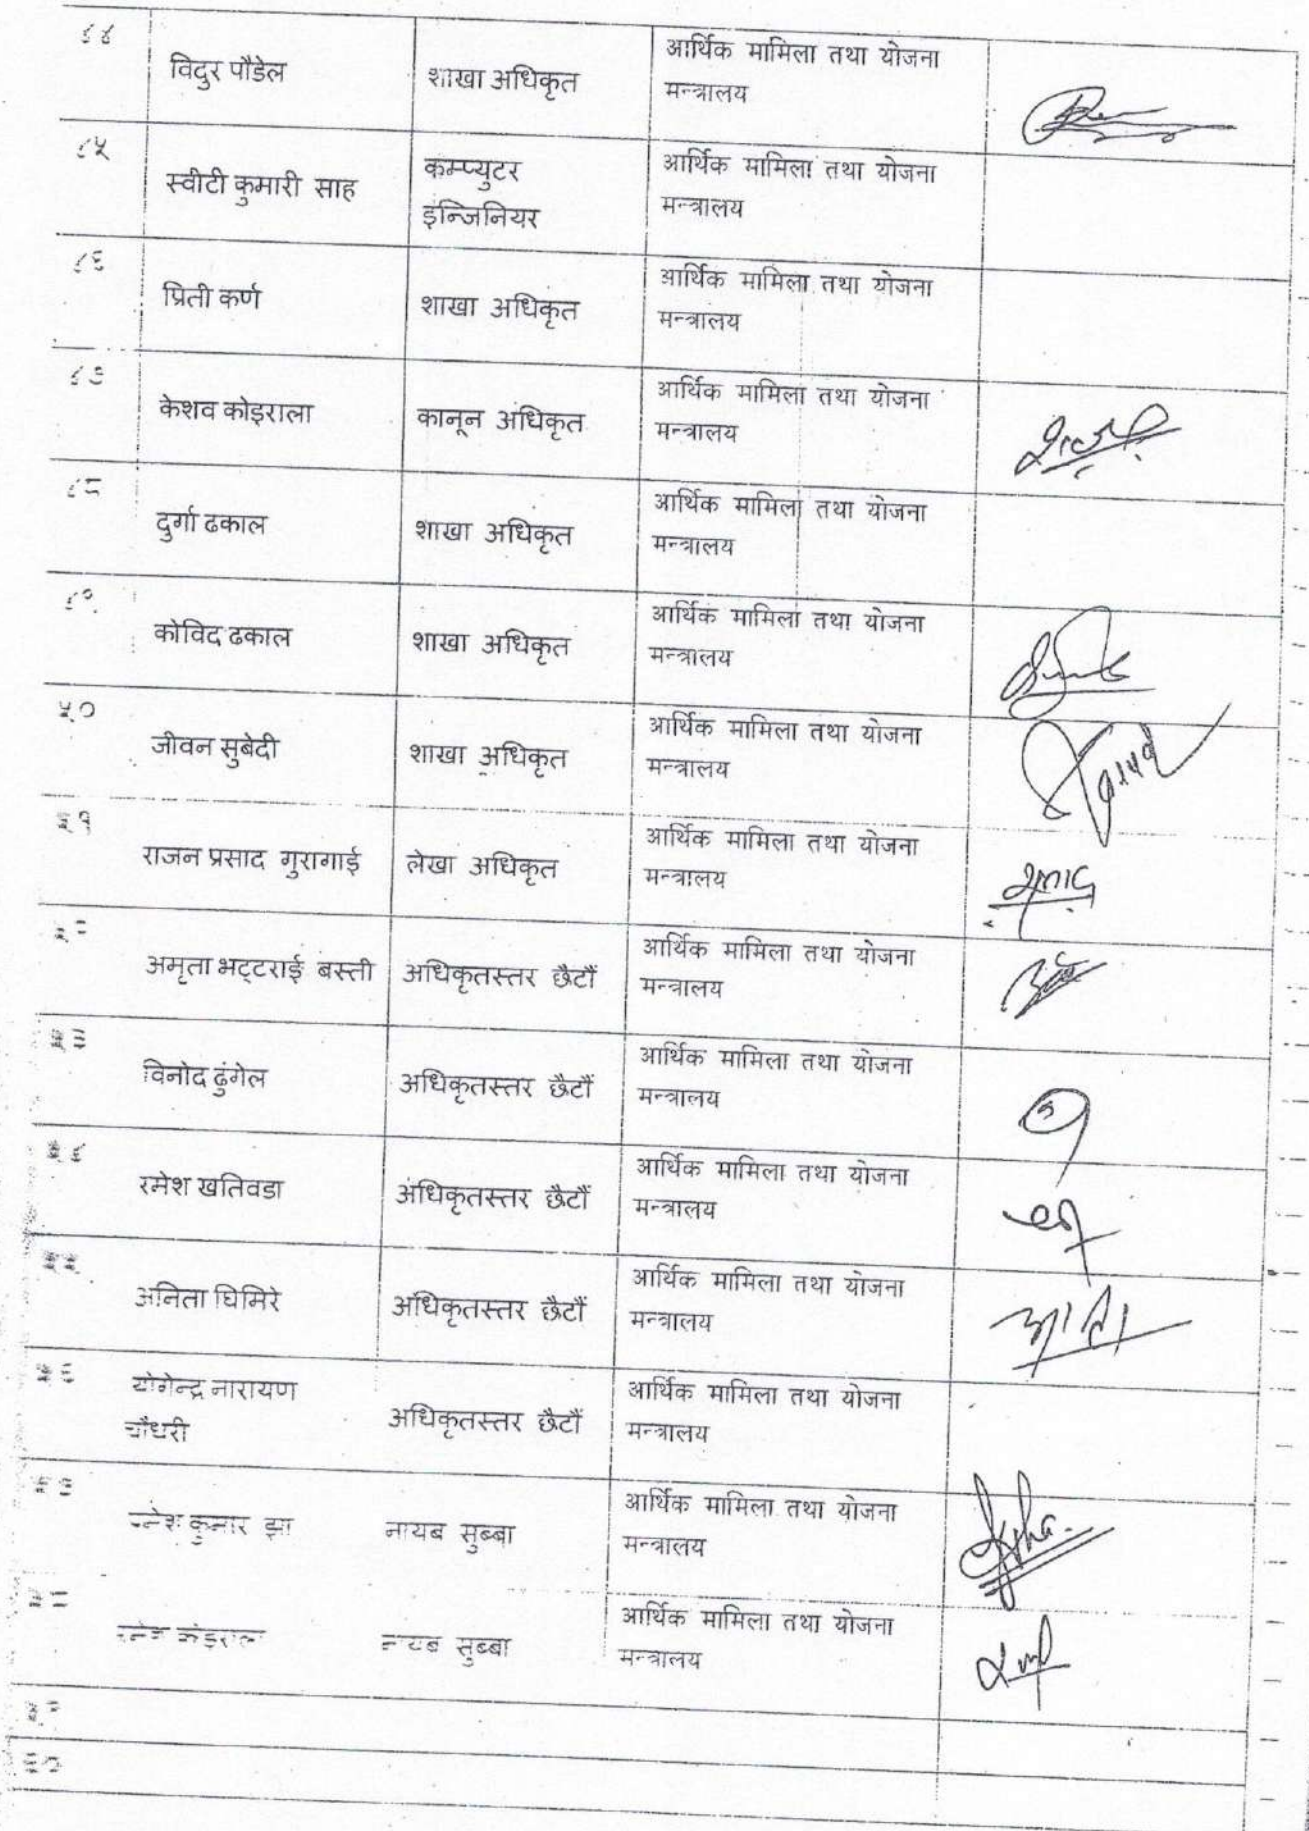 ४४
विदुर पौडेल
शाखा अधिकृत
आर्थिक मामिला तथा योजना
मन्त्रालय
४५
स्वीटी कुमारी साह
कम्प्युटर
इन्जिनियर
आर्थिक मामिला तथा योजना
मन्त्रालय
४६
प्रिती कर्ण
शाखा अधिकृत
आर्थिक मामिला तथा योजना
मन्त्रालय
४७
केशव कोइराला
कानून अधिकृत
आर्थिक मामिला तथा योजना
मन्त्रालय
४८
दुर्गा ढकाल
शाखा अधिकृत
आर्थिक मामिला तथा योजना
मन्त्रालय
४९
कोविद ढकाल
शाखा अधिकृत
आर्थिक मामिला तथा योजना
मन्त्रालय
५०
जीवन सुबेदी
शाखा अधिकृत
आर्थिक मामिला तथा योजना
मन्त्रालय
५१
राजन प्रसाद गुरागाई
लेखा अधिकृत
आर्थिक मामिला तथा योजना
मन्त्रालय
अमृता भट्टराई बस्ती
अधिकृतस्तर छैटौं
आर्थिक मामिला तथा योजना
मन्त्रालय
विनोद ढुंगेल
अधिकृतस्तर छैटौं
आर्थिक मामिला तथा योजना
मन्त्रालय
रमेश खतिवडा
अधिकृतस्तर छैटौं
आर्थिक मामिला तथा योजना
मन्त्रालय
अनिता घिमिरे
अधिकृतस्तर छैटौं
आर्थिक मामिला तथा योजना
मन्त्रालय
योगेन्द्र नारायण
चौधरी
अधिकृतस्तर छैटौं
आर्थिक मामिला तथा योजना
मन्त्रालय
कुमार झा
नायब सुब्बा
आर्थिक मामिला तथा योजना
मन्त्रालय
नायब सुब्बा
आर्थिक मामिला तथा योजना
मन्त्रालय